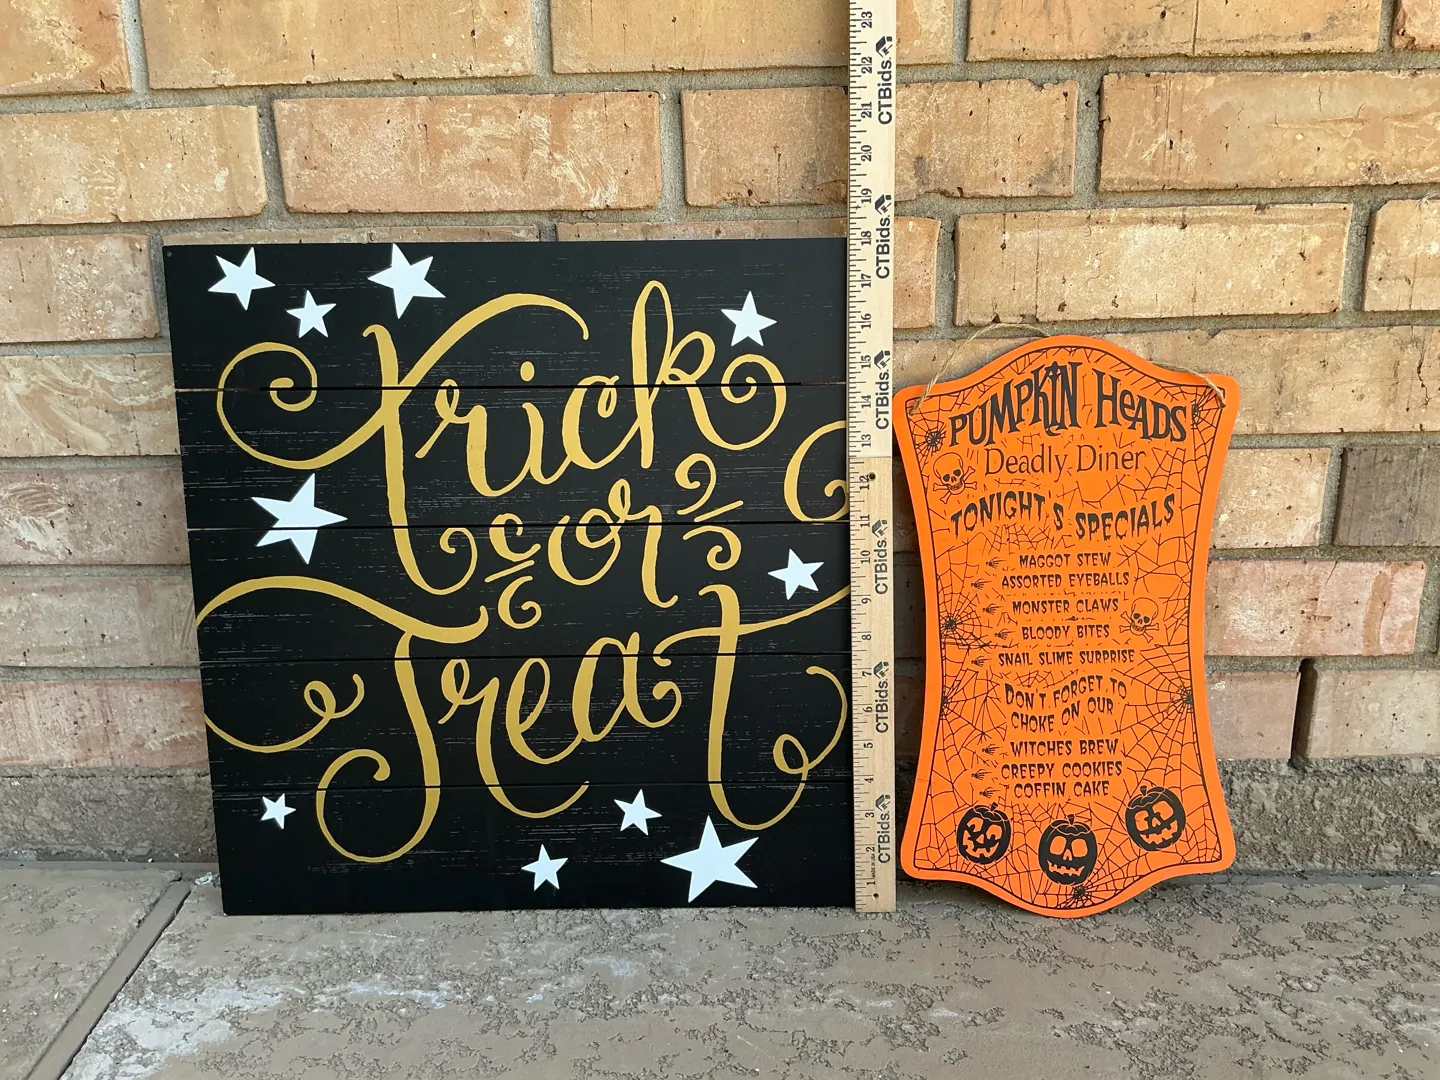 Trick
or
Treat
23
22
21
20
19
18
17
16
15
14
13
12
11
10
9
8
7
6
5
4
3
2
1
CTBids
CTBids
CTBids
CTBids
CTBids
CTBids
MADE IN USA
PUMPKIN HEADS
Deadly Diner
TONIGHT'S SPECIALS
MAGGOT STEW
ASSORTED EYEBALLS
MONSTER CLAWS
BLOODY BITES
SNAIL SLIME SURPRISE
DON'T FORGET TO
CHOKE ON OUR
WITCHES BREW
CREEPY COOKIES
COFFIN CAKE